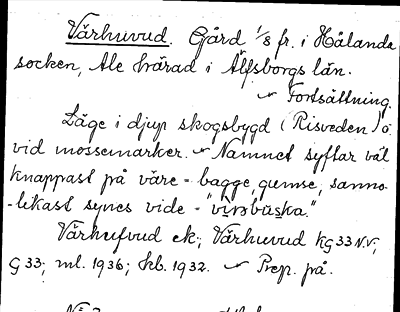 Värhuvud. Gård 1/8 fr. i Hålanda
socken, Ale härad i Älfsborgs län.
Fortsättning.
Läge i djup skogsbygd (Risveden) o.
vid mossemarker. Namnet syftar väl
knappast på väre - bagge, gumse, sanno-
-likast synes vide - "virsbuska."
Värhufvud ek.; Värhuvud kg 33 N.V.;
G 33; ml. 1936; kb. 1932. Prep. på.